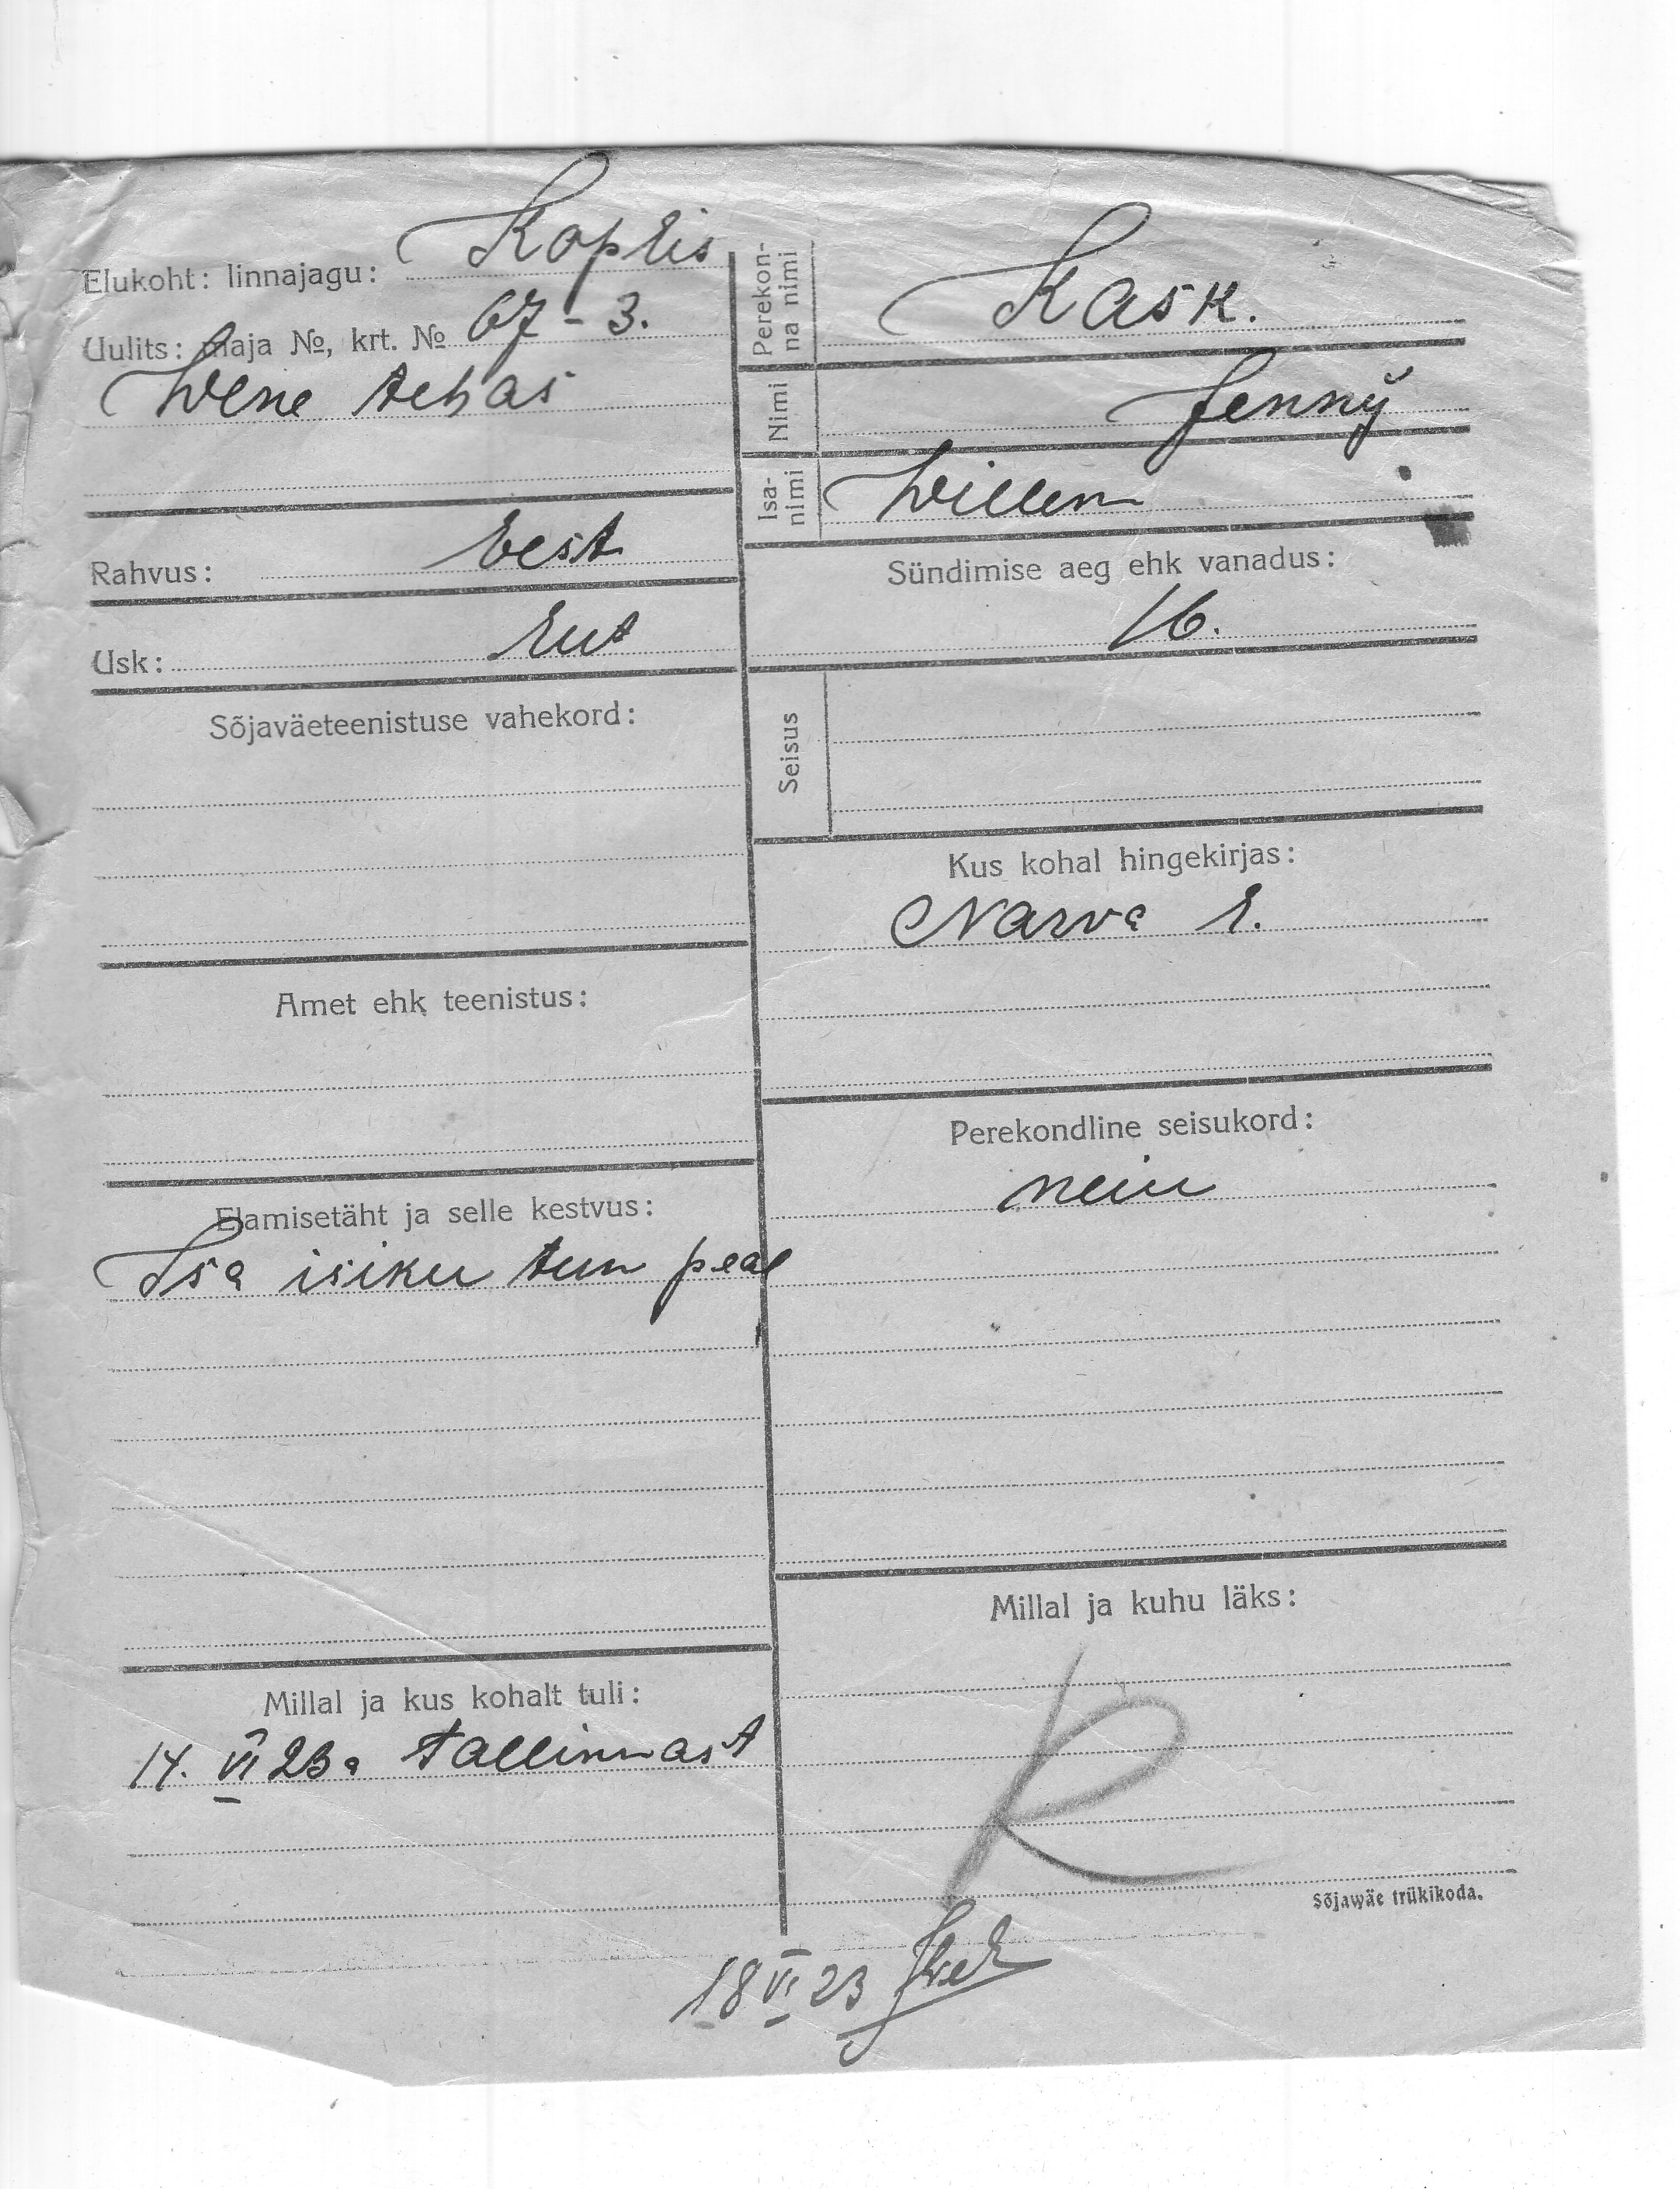 Elukoht: linnajagu: Koplis
Uulits: maja №, krt. № 67 - 3.
Wene tehas
Rahvus: eest
Usk: lut
Sõjaväeteenistuse vahekord:
Amet ehk teenistus:
Elamisetäht ja selle kestvus:
Isa isiku tun peal
Millal ja kus kohalt tuli:
14. VI 23 a Tallinnast
Perekon-
na nimi
Kask.
Nimi Jenny
Isa-
nimi
Willem
Sündimise aeg ehk vanadus:
16.
Seisus
Kus kohal hingekirjas:
Narva l.
Perekondline seisukord:
neiu
Millal ja kuhu läks:
R
Sõjawäe trükikoda.
18 VI 23